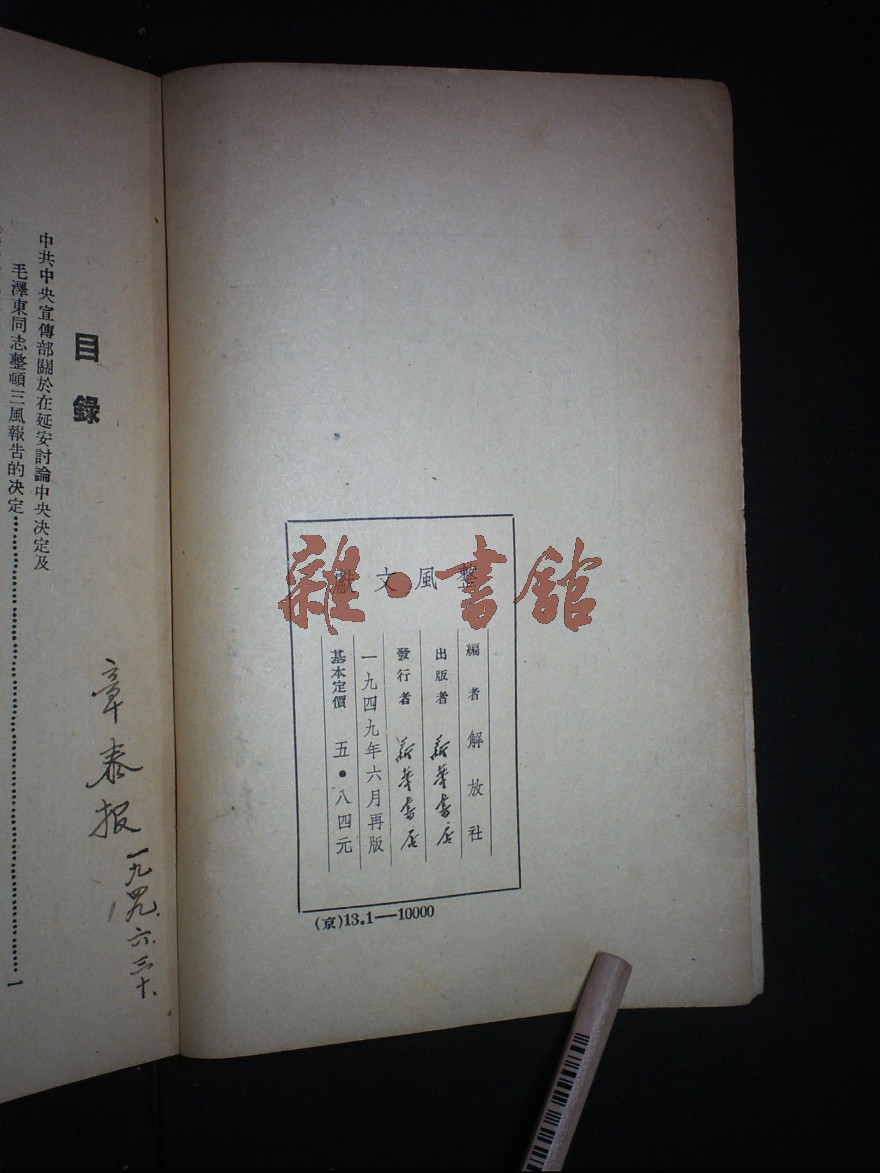 整風文獻
編者 解放社
出版者 新華書店
發行者 新華書店
一九四九年六月再版
基本定價 五•八四元
(京)13.1—10000
雜•書館
目錄
中共中央宣傳部關於在延安討論中央決定及
毛澤東同志整頓三風報告的決定……………………………………1
章泰报
一九四九.六.三十.